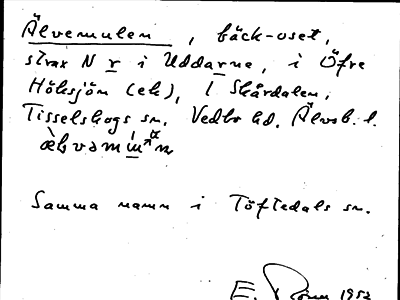 Älvemulen, bäck-oset,
strax N r i Uddarne, i Öfre
Höksjön (ek), i Skårdalen,
Tisselskogs sn. Vedbo hd. Älvsb. l.
Samma namn i Töftedals sn.
E. 1952